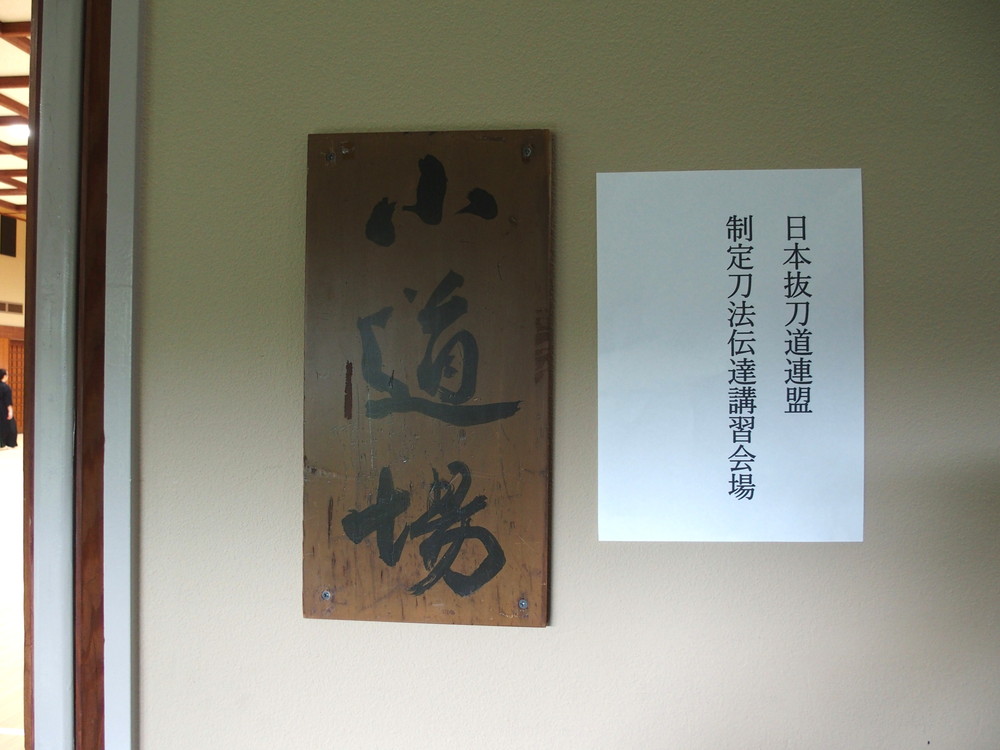 小道場
日本抜刀道連盟
制定刀法伝達講習会場